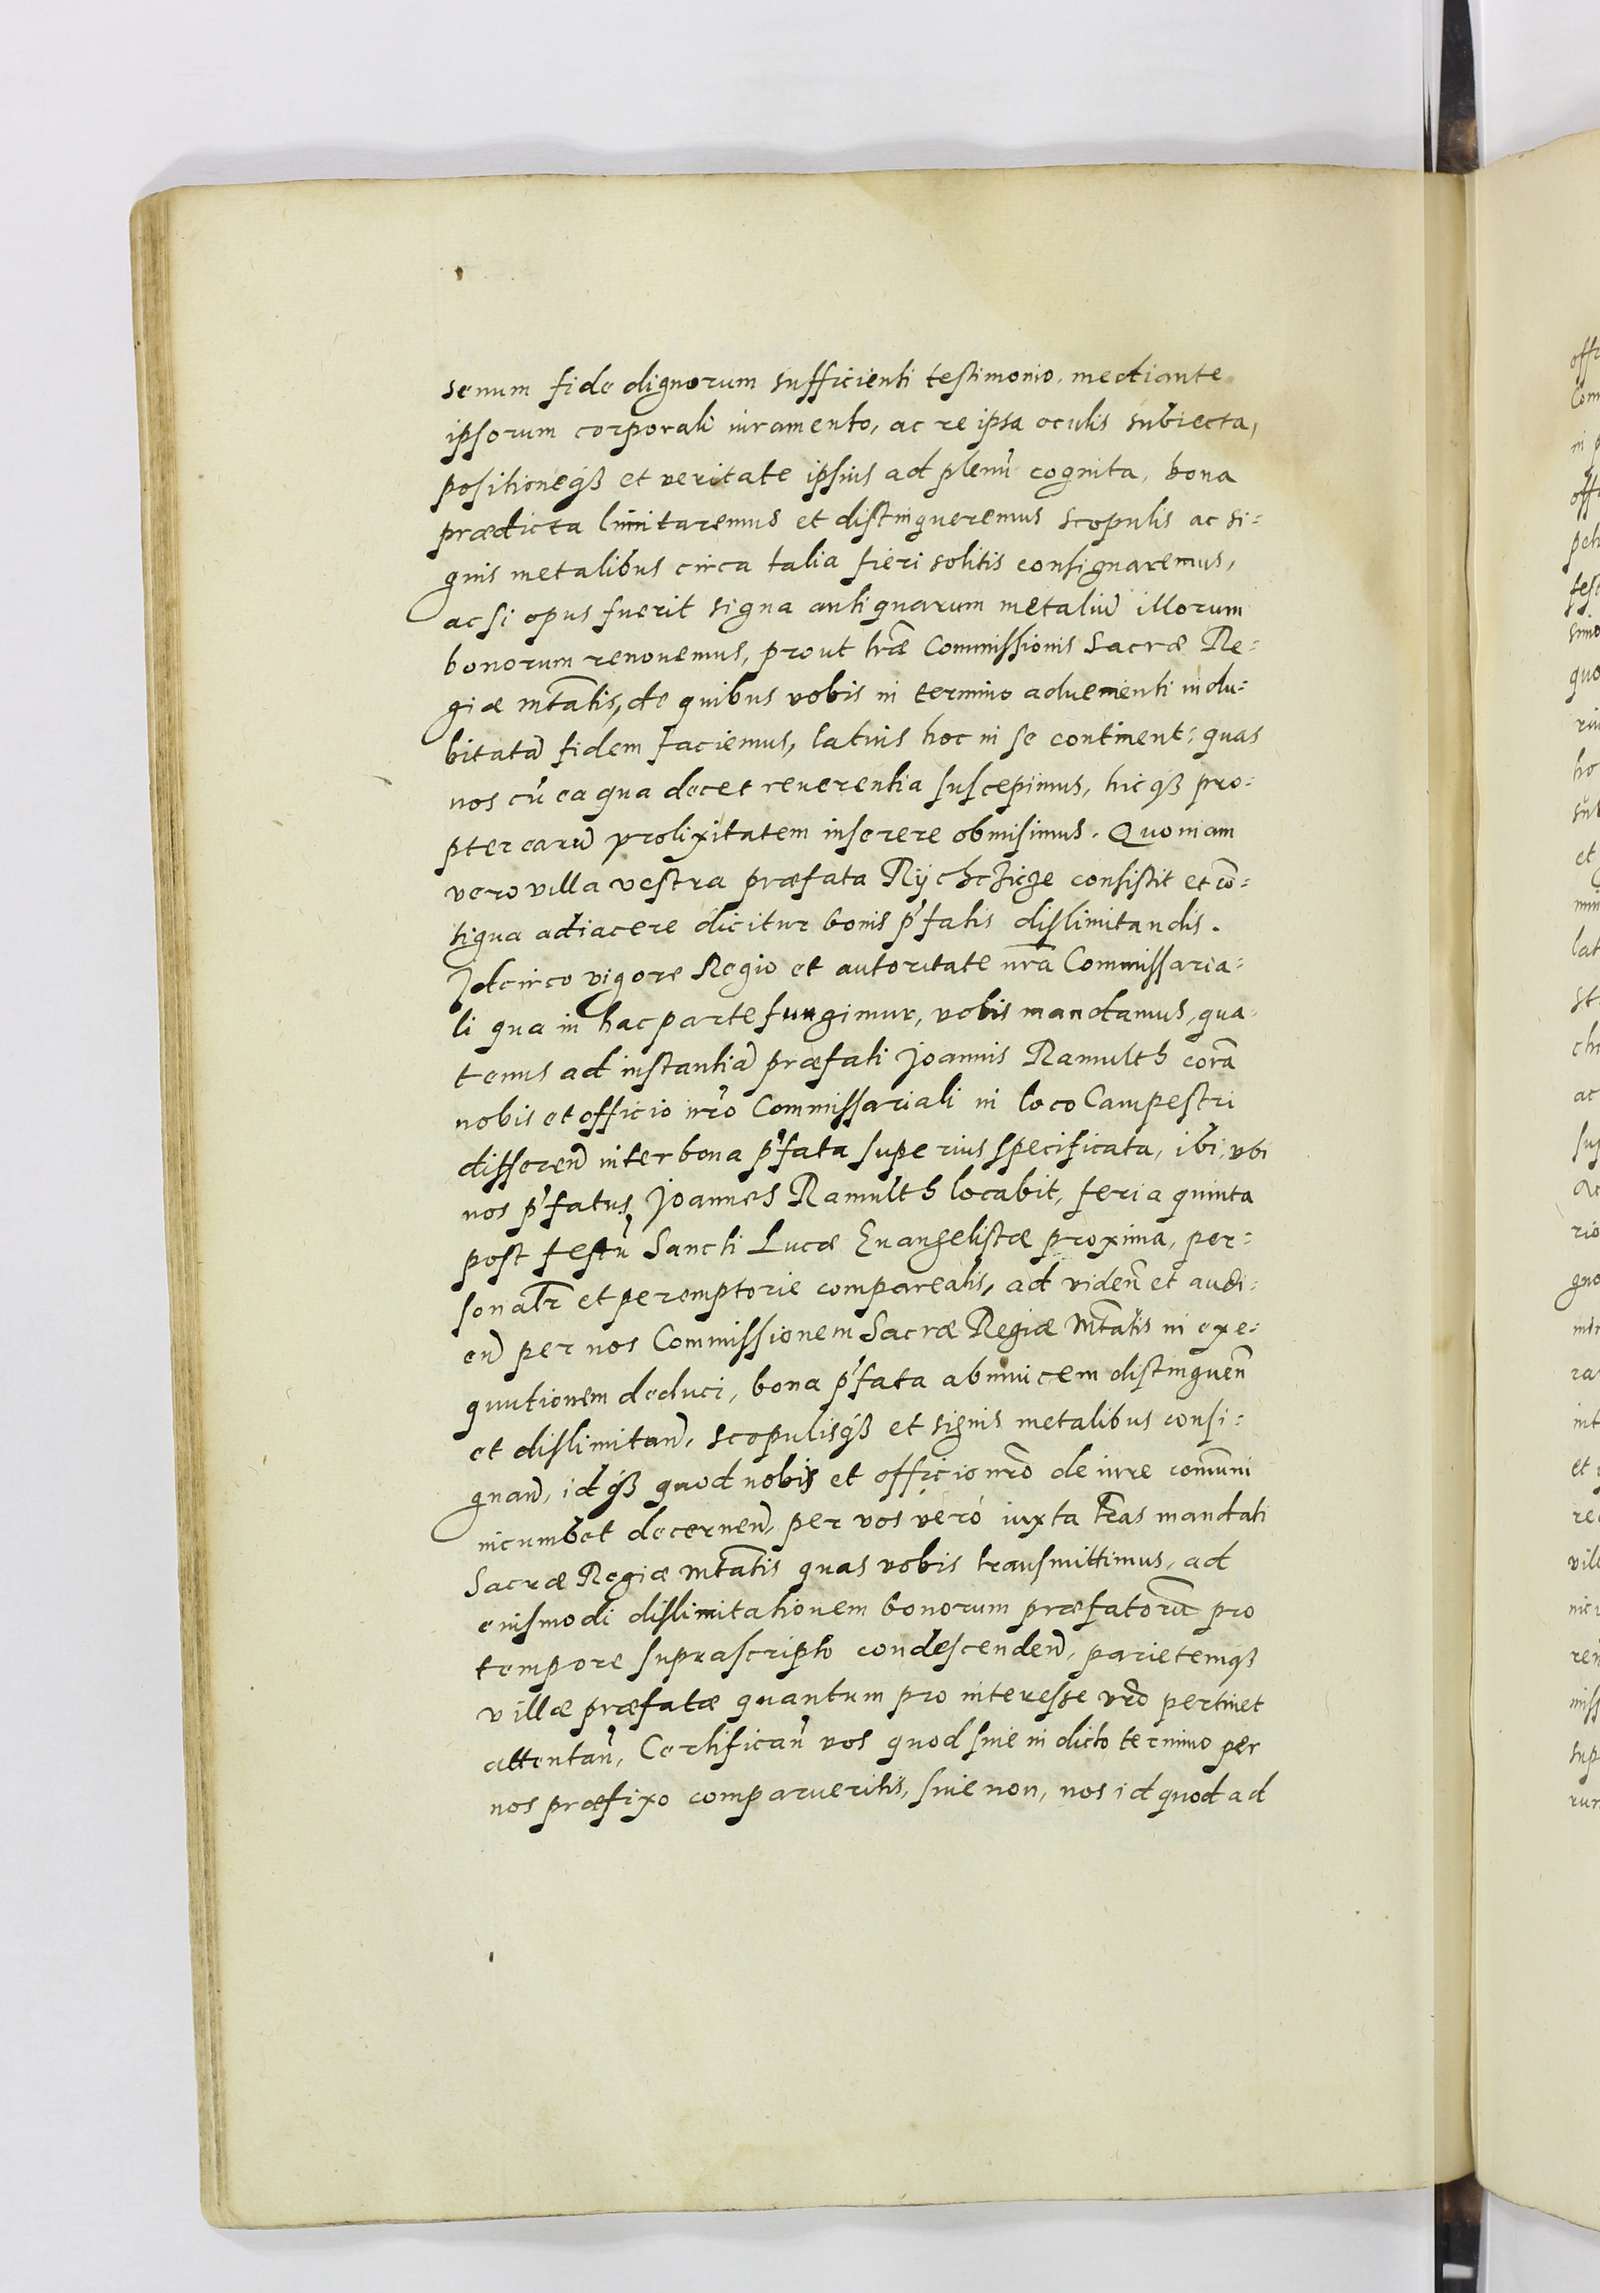 senum fide dignorum sufficienti testimonio, mediante
ipsorum corporali iuramento, ac re ipsa oculis subiecta,
positioneq₃ et veritate ipsius ad plenũ cognita, bona
prædicta limitaremus et distingueremus scopulis ac si:
gnis metalibus circa talia fieri solitis consignaremus,
ac si opus fuerit signa antiquarum metaliũ illorum
bonorum renouemus, prout lræ Commissionis Sacræ Re:
giæ mtatis, de quibus vobis in termino aduenienti indu:
bitatã fidem faciemus, latius hoc in se continent: quas
nos cũ ea qua decet reuerentia suscepimus, hicq₃ pro:
pter earũ prolixitatem inserere obmisimus. Quoniam
vero villa vestra præfata Rijchczicze consistit et cõ:
tigua adiacere dicitur bonis pfatis dislimitandis.
Idcirco vigore Regio et autoritate nrã Commissaria:
li qua in hac parte fungimur, vobis mandamus, qua:
tenus ad instantiã præfati Joannis Ramulth corã
nobis et officio nrõ Commissariali in loco Campestri
differeñ inter bona pfata superius specificata, ibi, vbi
nos pfatus Joannes Ramulth locabit, feria quinta
post festũ Sancti Lucæ Euangelistæ proxima, per:
sonalr et peremptorie compareatis, ad videñ et audi:
eñ per nos Commissionem Sacræ Regiæ Mtatis in exe:
quutionem deduci, bona pfata abinuicem distingueñ
et dislimitañ, scopulisq₃ et signis metalibus consi:
gnañ, idq₃ quod nobis et officio nrõ de iure comũni
incumbet decerneñ, per vos verò iuxta lras mandati
Sacræ Regiæ Mtatis quas vobis transmittimus, ad
eiusmodi dislimitationem bonorum præfatorũ pro
tempore suprascripto condescendeñ, parietemq₃
villæ præfatæ quantum pro interesse vrõ pertinet
attentañ, Certificañ vos quod siue in dicto termino per
nos præfixo comparueritis, siue non, nos id quod ad